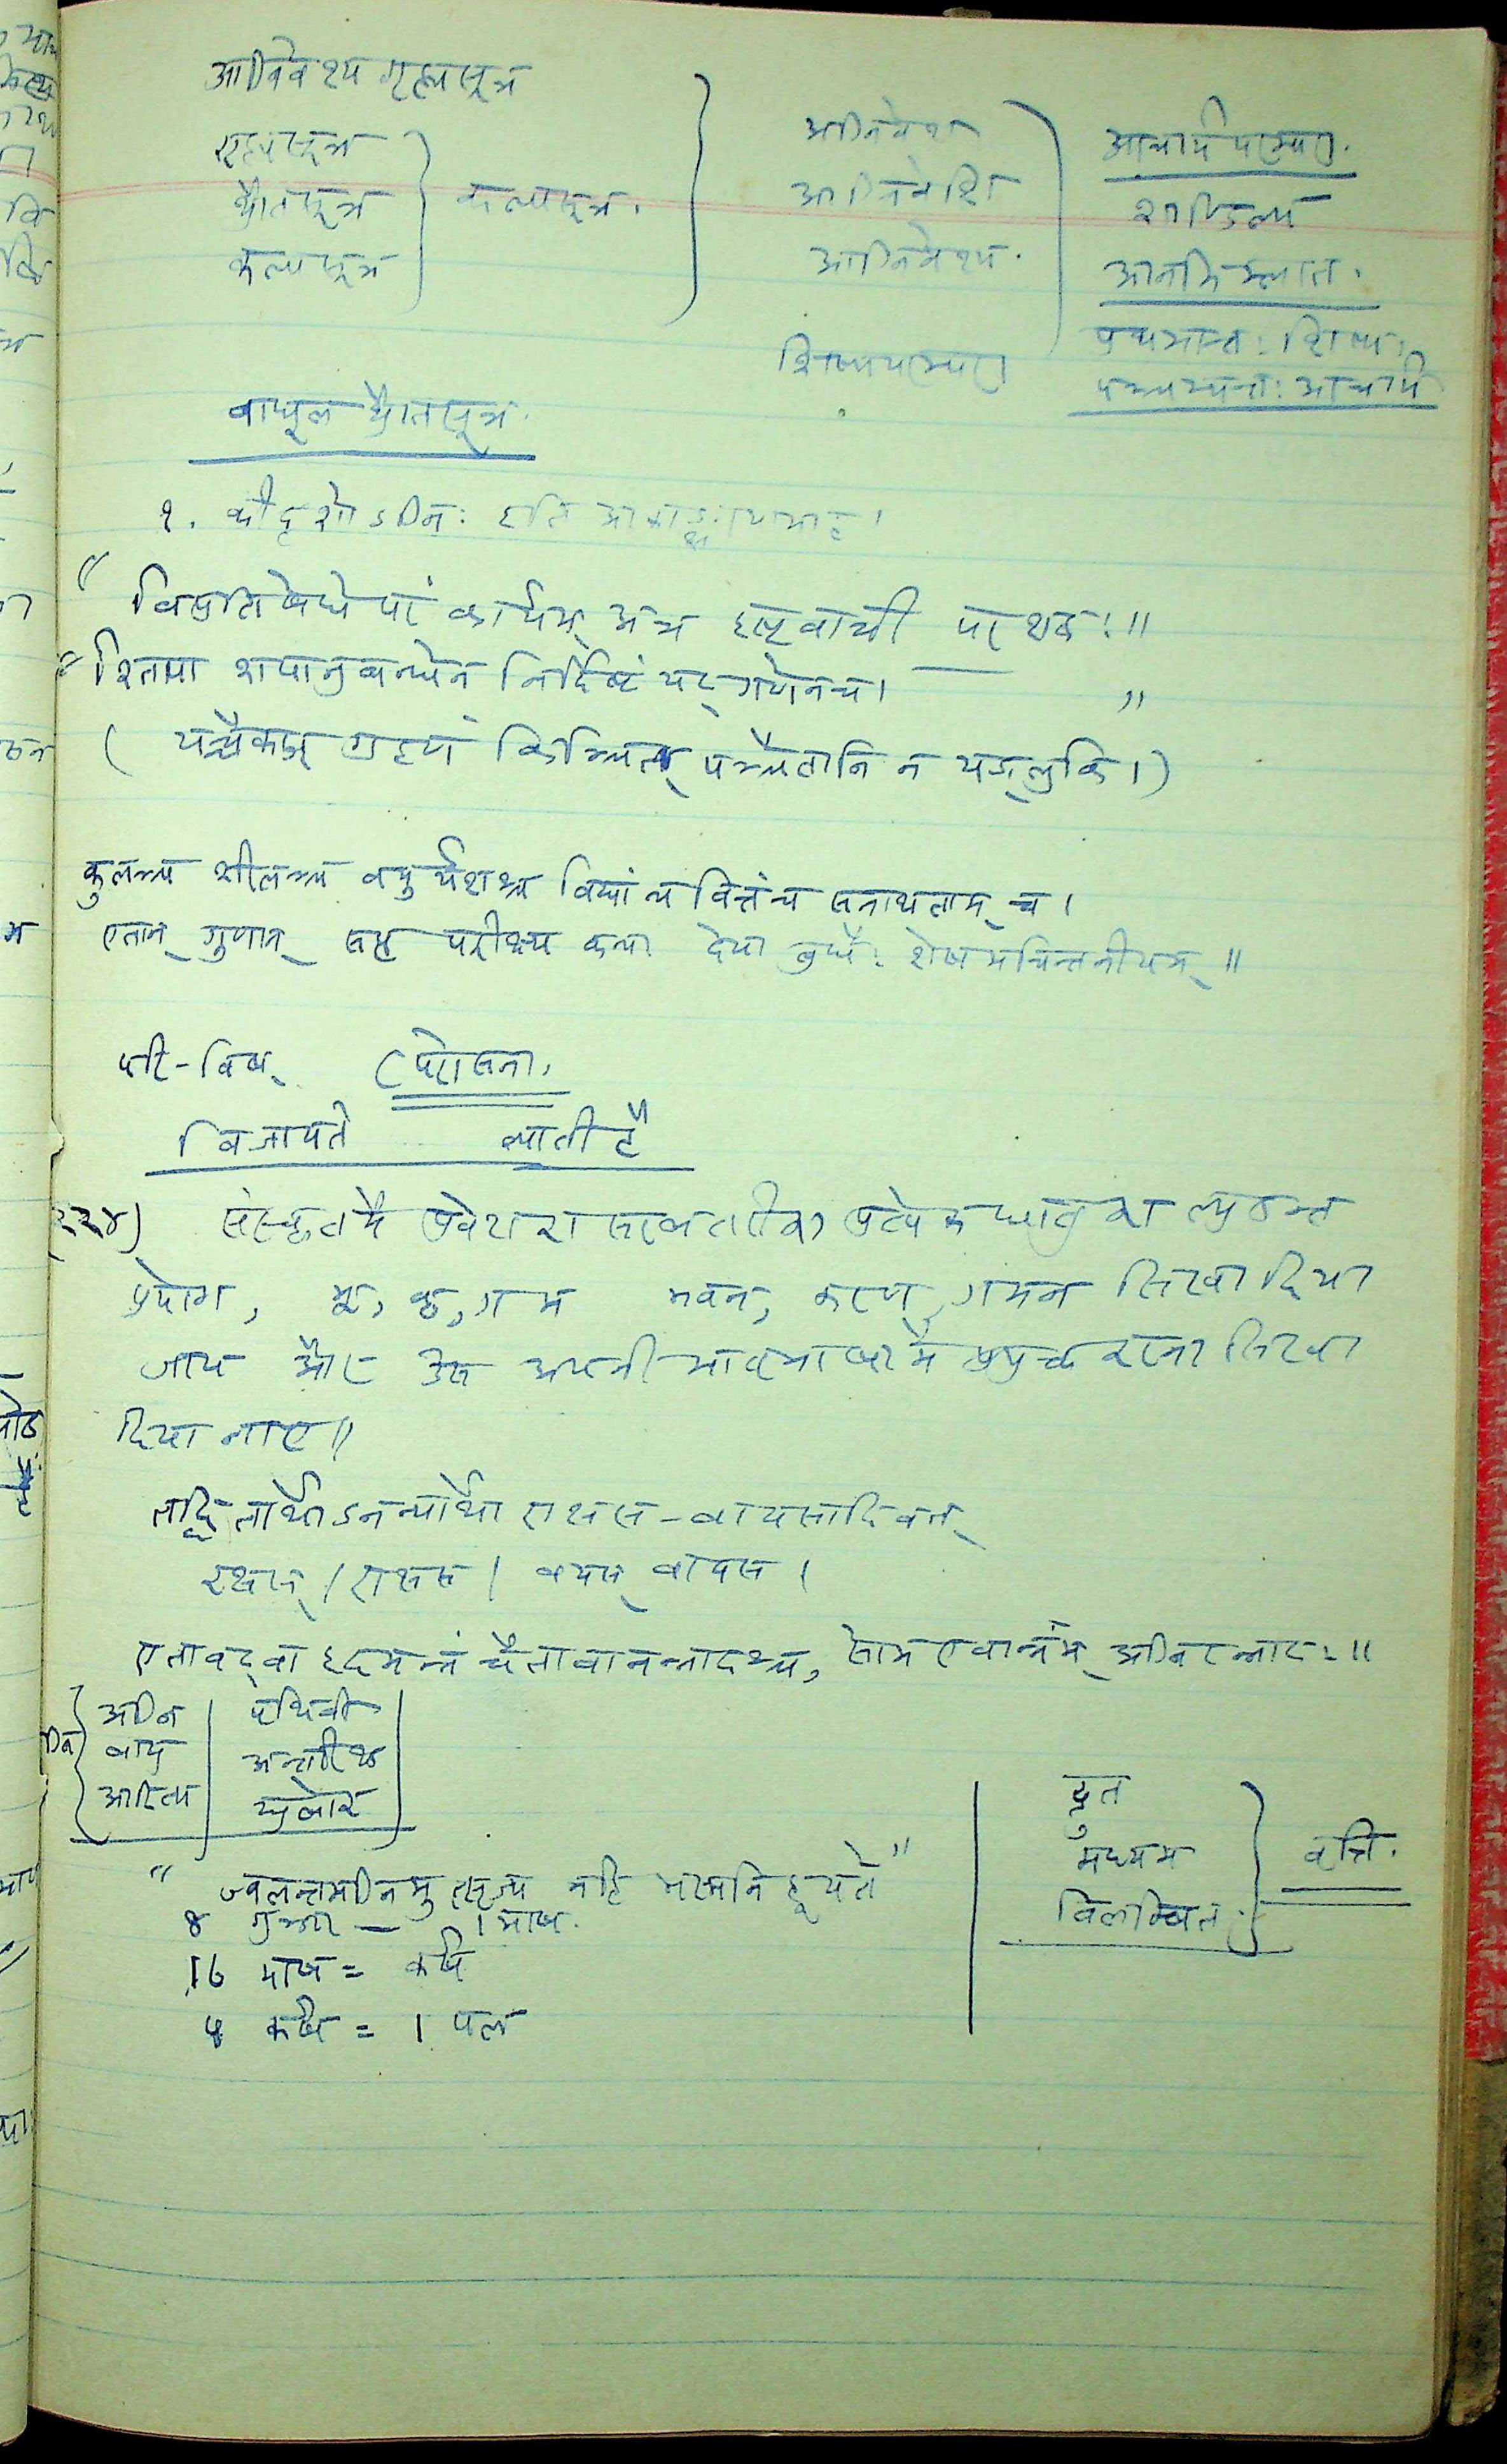 आग्निवेश्य गृह्यसूत्र
गृह्यसूत्र
श्रौतसूत्र
कल्पसूत्र
कल्पसूत्र.
अग्निवेश
आग्निवेशि
आग्निवेश्य.
शिष्यपरम्परा
आचार्य परम्परा.
शाण्डिल्य
आनभिम्लात.
प्रथमान्त: शिष्य:
पञ्चम्यन्त: आचार्य
वाधूल श्रौतसूत्र.
१. कीदृशोऽग्नि: इति आकाङ्क्षायामाह।
" विप्रतिषेधे परं कार्यम् अत्र इष्टवाची पर शब्द:॥
" श्तिपा शपानुबन्धेन निर्दिष्टं यद् गणेन च। "
( यत्रैकाज् ग्रहणं किञ्चित् पञ्चैतानि न यङ्लुकि।)
कुलञ्च शीलञ्च वपुर्यशश्च विद्यां च वित्तं च सनाथताम् च।
एतान् गुणान् सप्त परीक्ष्य कन्या देया बुधै: शेषमचिन्तनीयम्॥
परि-विष् (परोसना.
विजायते ब्याती है
२२४) संस्कृत में प्रवेश का सरलतरीका प्रत्येक धातु का ल्युडन्त
प्रयोग, भू, कृ, गम भवन, करण, गमन सिखा दिया
जाय और उसे अपनी मातृभाषा में प्रयुक्त करना सिखा
दिया जाए॥
तद्धितार्थोऽनन्यार्थो राक्षस-वायसादिवत्
रक्षस् / राक्षस / वयस् वायस।
एतावद् वा इदमन्नं चैतावानन्नादश्च, सोम एवान्नम् अग्निरन्नाद:॥
अग्नि | पृथिवी
वायु | अन्तरिक्ष
आदित्य | द्युलोक
द्रुत
मध्यम
विलम्बित.
वृत्ति.
" ज्वलन्तमग्निमुत्सृज्य नहि भस्मनि हूयते "
8 गुञ्जा — 1 माष.
16 माष = कर्ष
4 कर्ष = 1 पल